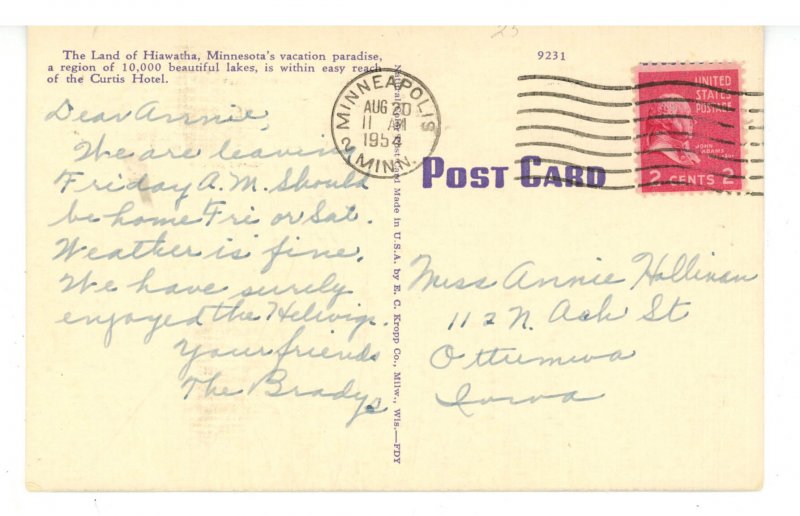 25
The Land of Hiawatha, Minnesota's vacation paradise,
a region of 10,000 beautiful lakes, is within easy reach
of the Curtis Hotel.
9231
MINNEAPOLIS
AUG 20
11 AM
1954
2 MINN.
UNITED
STATES
POSTAGE
JOHN
ADAMS
2 CENTS 2
POST CARD
Made in U.S.A. by E. C. Kropp Co., Milw., Wis.—FDY
Dear Annie,
We are leaving
Friday A.M. Should
be home Fri or Sat.
Weather is fine.
We have surely
enjoyed the Helivigs.
Your friends
The Bradys
Miss Annie Hallinan
112 N. Ash St
Ottumwa
Iowa